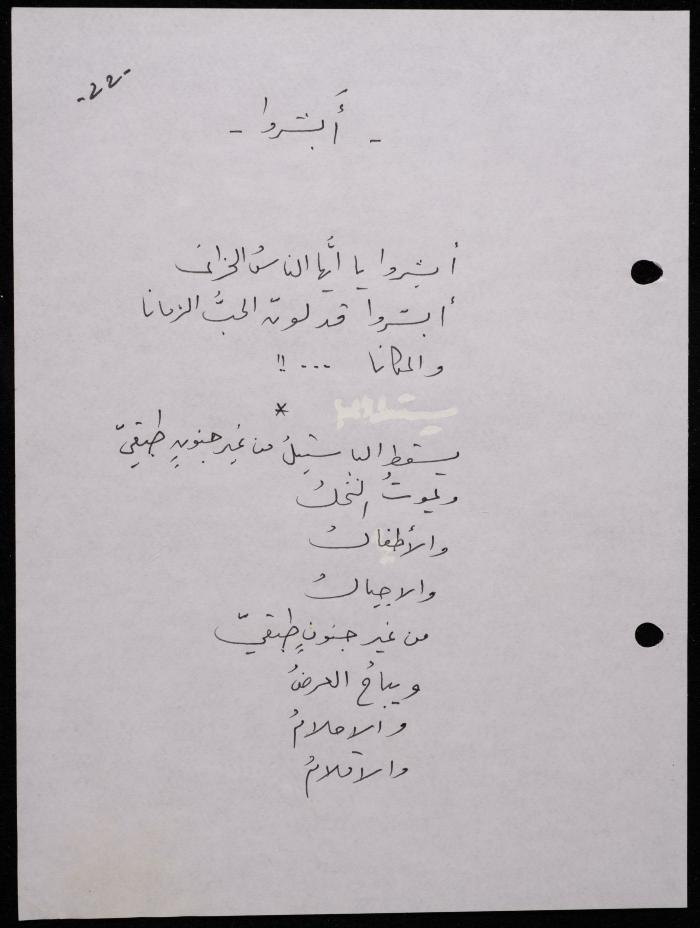 -٢٢-
- أَبشروا -
أبشِروا يا أيُّها الناسُ الحزانى
أبشروا قد لوّن الحبُّ الزمانا
والمكانا ... !!
*
يسقط الباستيلُ من غيرِ جنونٍ طبقيّ
وتموتُ النخلُ
والأطفالُ
والاجيالُ
من غير جنونٍ طبقيّ
ويباعُ العرضُ
والاحلامُ
والاقلامُ